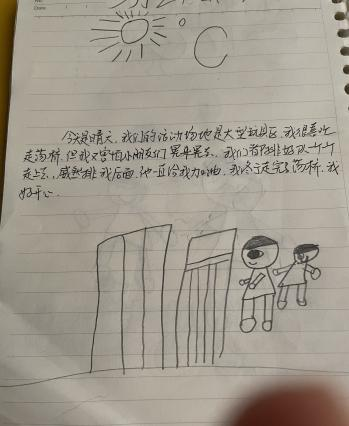 Date
℃
今天是晴天,我们的活动场地是大型玩具区,我很喜欢
走荡桥,但我又害怕小朋友们晃来晃去,我们都排好队一个个
走上去,排我后面,她一直给我加油,我终于走完了荡桥,我
好开心.